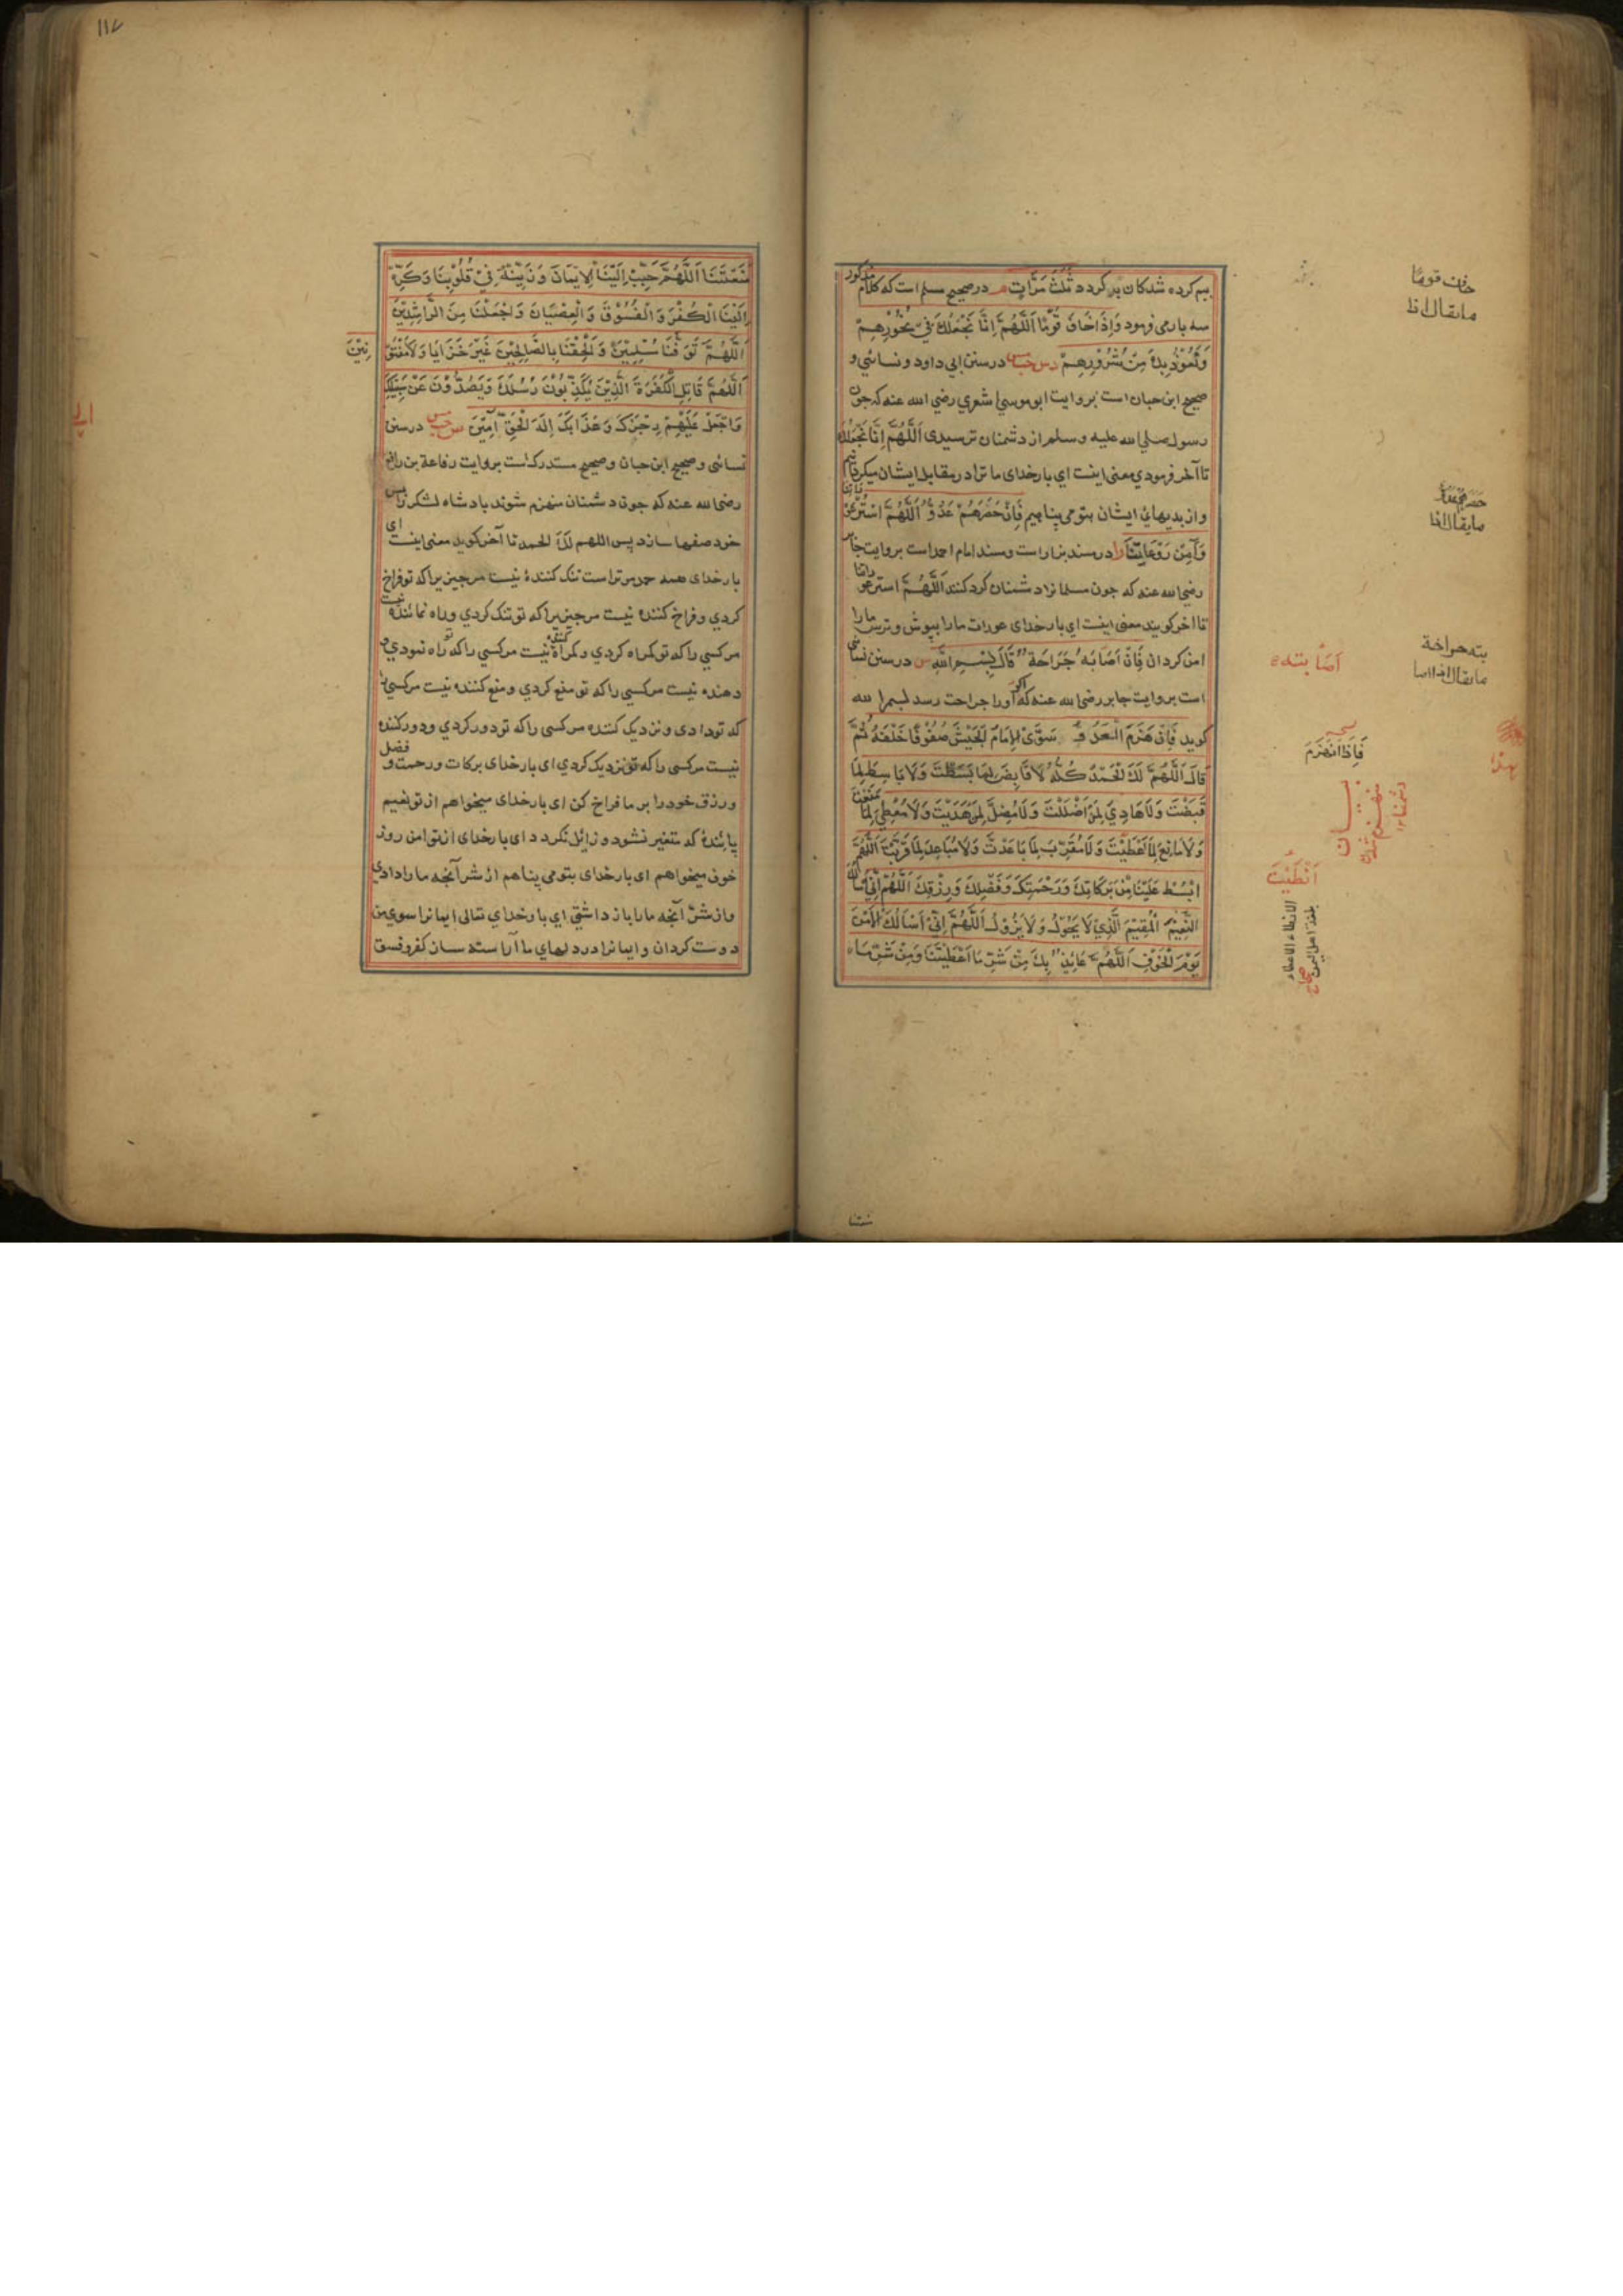 بیم کرده شدکان بد کردد ثَلٰثَ مَرَّاتٍ م در صحیح مسلم است که کلام مذکور
سه بار می فرمود وَاِذَا خَافَ قَوْمًا اَللّٰهُمَّ اِنَّا نَجْعَلُكَ فِيْ نُحُوْرِهِمْ
وَنَعُوْذُ بِكَ مِنْ شُرُوْرِهِمْ د س حب در سنن ابی داود و نسائي و
صحیح ابن حبان است بروایت ابو موسیٰ اشعري رضي الله عنه که جون
رسول صلي الله علیه وسلم از دشمنان ترسیدی اَللّٰهُمَّ اِنَّا نَجْعَلُكَ
تا آخر فرمودي معنی اینست ای بار خدای ما ترا در مقابل ایشان میکردانیم
واز بدیهائ ایشان بتو می پناهیم فَاِنْ حَصَرَهُمْ عَدُوٌّ اَللّٰهُمَّ اسْتُرْ عَوْرَاتِنَا
وَآمِنْ رَوْعَاتِنَا ر ا در مسند بزار است ومسند امام احمد است بروایت جابر
رضي الله عنه که جون مسلمانرا دشمنان کرد کنند اَللّٰهُمَّ استر عوراتنا
تا اخر کویند معنی اینست اي بار خدای عورات ما را بپوش و ترس ما را
امن کردان فَاِنْ اَصَابَهُ جَرَاحَةٌ قَالَ بِسْمِ اللّٰهِ س در سنن نسائي
است بروایت جابر رضي الله عنه که اکر اورا جراحت رسد بسم الله
کوید فَاِنْ هَزَمَ الْعَدُوَّ سَوَّى الْاِمَامُ الْجَيْشَ صُفُوْفًا خَلْفَهُ ثُمَّ
قَالَ اَللّٰهُمَّ لَكَ الْحَمْدُ كُلُّهُ لَا قَابِضَ لِمَا بَسَطْتَ وَلَا بَاسِطَ لِمَا
قَبَضْتَ وَلَا هَادِيَ لِمَنْ اَضْلَلْتَ وَلَا مُضِلَّ لِمَنْ هَدَيْتَ وَلَا مُعْطِيَ لِمَا مَنَعْتَ
وَلَا مَانِعَ لِمَا اَعْطَيْتَ وَلَا مُقَرِّبَ لِمَا بَاعَدْتَ وَلَا مُبَاعِدَ لِمَا قَرَّبْتَ اَللّٰهُمَّ
ابْسُطْ عَلَيْنَا مِنْ بَرَكَاتِكَ وَرَحْمَتِكَ وَفَضْلِكَ وَرِزْقِكَ اَللّٰهُمَّ اِنِّيْ اَسْاَلُكَ
النَّعِيْمَ الْمُقِيْمَ الَّذِيْ لَا يَحُوْلُ وَلَا يَزُوْلُ اَللّٰهُمَّ اِنِّيْ اَسْاَلُكَ الْاَمْنَ
يَوْمَ الْخَوْفِ اَللّٰهُمَّ عَائِذٌ بِكَ مِنْ شَرِّ مَا اَعْطَيْتَنَا وَمِنْ شَرِّ مَا
خاف قومًا
ما یقال اذا
ما یقال اذا
اَصَابته
بته جراحة
ما یقال اذا اصا
فَاِذَا انْهَزَمَ
اَنْطَيْتَ
الانطاء الاعطاء
بلغة اهل الیمن
۱۱۷
مَنَعْتَنَا اَللّٰهُمَّ حَبِّبْ اِلَيْنَا الْاِيْمَانَ وَزَيِّنْهُ فِيْ قُلُوْبِنَا وَكَرِّهْ
اِلَيْنَا الْكُفْرَ وَالْفُسُوْقَ وَالْعِصْيَانَ وَاجْعَلْنَا مِنَ الرَّاشِدِيْنَ
اَللّٰهُمَّ تَوَفَّنَا مُسْلِمِيْنَ وَاَلْحِقْنَا بِالصَّالِحِيْنَ غَيْرَ خَزَايَا وَلَا مَفْتُوْنِيْنَ
اَللّٰهُمَّ قَاتِلِ الْكَفَرَةَ الَّذِيْنَ يُكَذِّبُوْنَ رُسُلَكَ وَيَصُدُّوْنَ عَنْ سَبِيْلِكَ
وَاجْعَلْ عَلَيْهِمْ رِجْزَكَ وَعَذَابَكَ اِلٰهَ الْحَقِّ آمِيْنَ س حب مس در سنن
نسائی وصحیح ابن حبان وصحیح مستدرک است بروایت رفاعة بن رافع
رضی الله عنه که جون دشمنان منهزم شوند بادشاه لشکر را پس
خود صفها سازد پس اللهم لك الحمد تا آخر کوید معنی اینست ای
بار خدای همه حمد مر تراست تنک کنندهٔ نیست مر جیزیرا که تو فراخ
کردي و فراخ کننده نیست مر جیزیرا که تو تنک کردي وراه نمائنده نیست
مر کسي را که تو کمراه کردي و کمراه کننده نیست مر کسي را که تو راه نمودي و
دهنده نیست مر کسي را که تو منع کردي و منع کننده نیست مر کسي را
که تو دادی و نزدیک کننده مر کسی را که تو دور کردي و دور کننده
نیست مر کسی را که تو نزدیک کردي ای بار خدای برکات و رحمت و فضل
ورزق خود را بر ما فراخ کن ای بار خدای میخواهم از تو نعیم
پائندهٔ که متغیر نشود و زائل نکردد ای بار خدای از تو امن روز
خوف میخواهم ای بار خدای بتو می پناهم از شر آنچه ما را دادي
واز شر آنچه ما را باز داشتي اي بار خداي تعالی ایمانرا سوي من
دوست کردان و ایمانرا در دلهاي ما آراسته ساز کفر و فسق